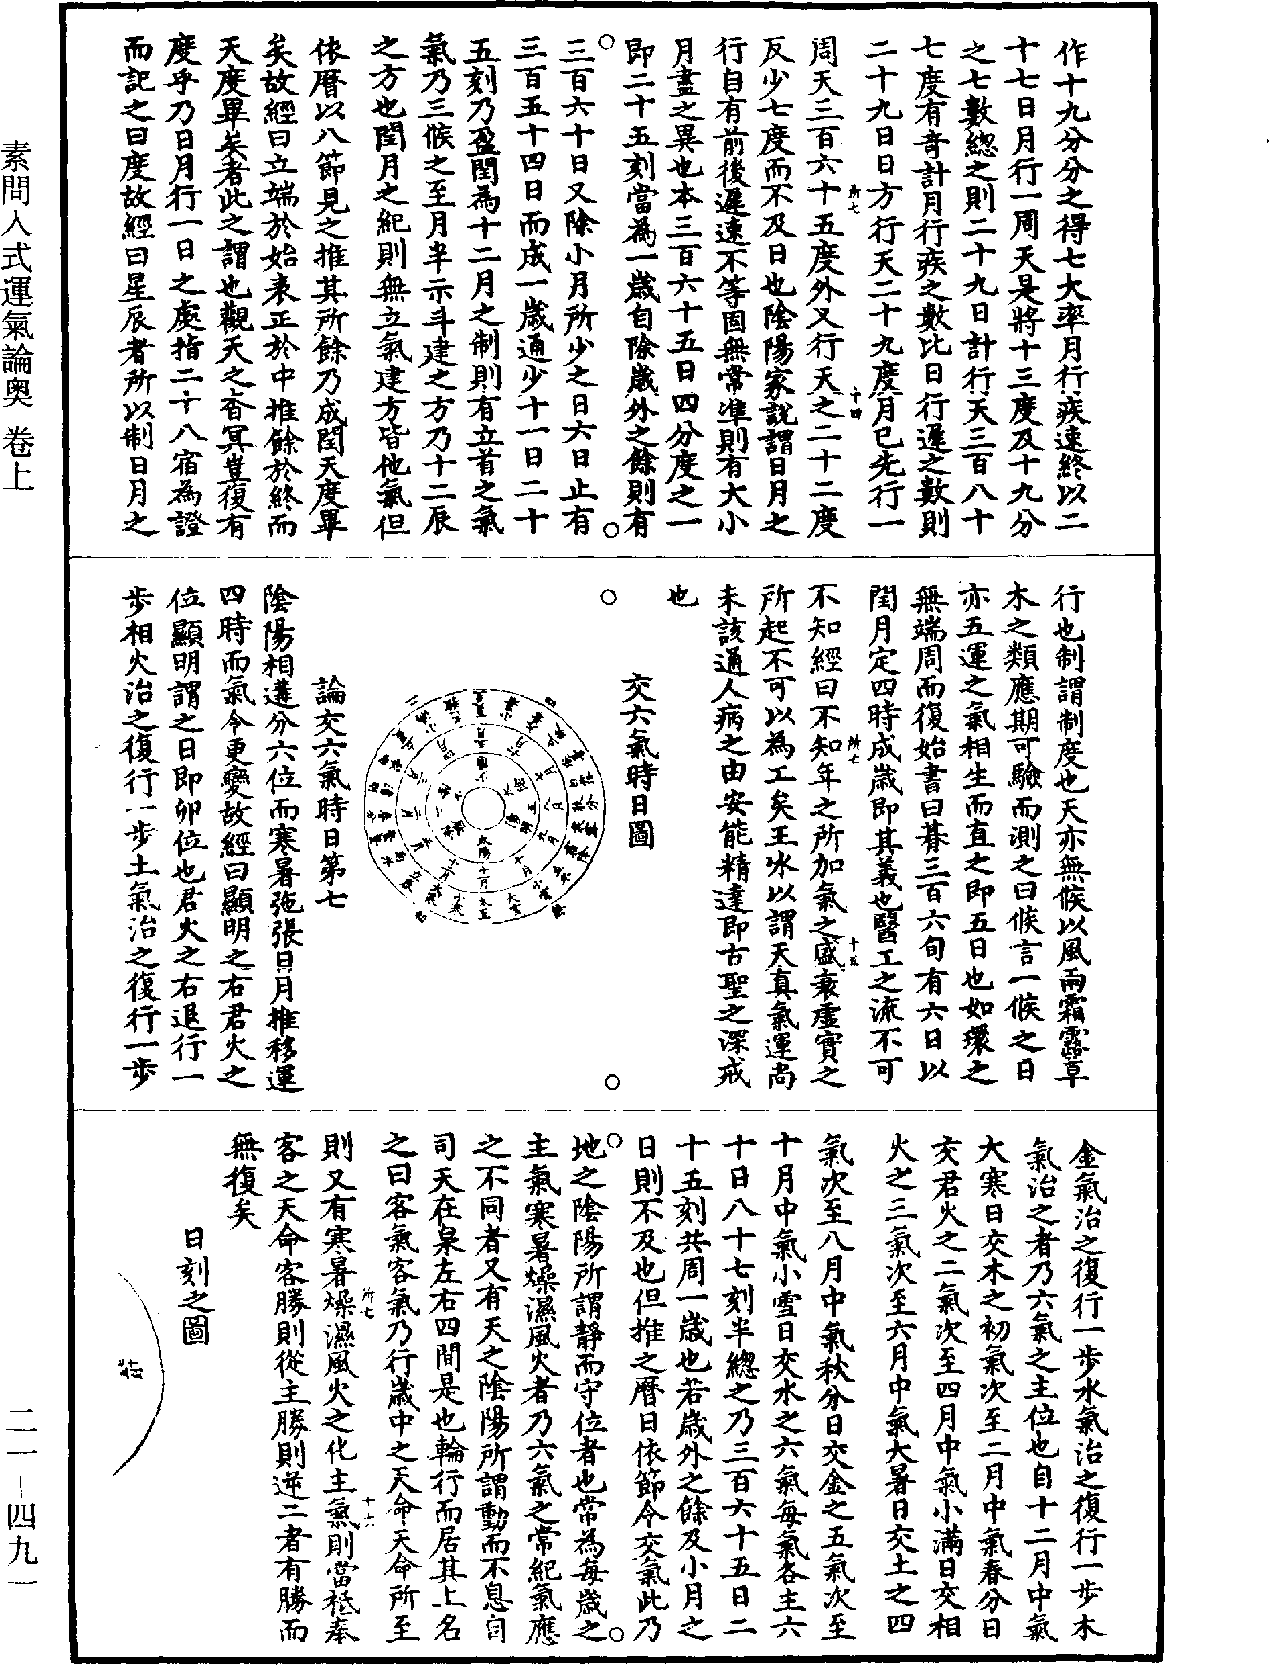 作十九分分之得七大率月行疾速終以二
十七日月行一周天是將十三度及十九分
之七數總之則二十九日計行天三百八十
七度有奇計月行疾之數比日行遲之數則
二十九日日方行天二十九度月已先行一
周天三百六十五度外又行天之二十二度
反少七度而不及日也陰陽家說謂日月之
行自有前後遲速不等固無常準則有大小
月盡之異也本三百六十五日四分度之一
即二十五刻當為一歲自除歲外之餘則有
三百六十日又除小月所少之日六日止有
三百五十四日而成一歲通少十一日二十
五刻乃盈閏為十二月之制則有立首之氣
氣乃三候之至月半示斗建之方乃十二辰
之方也閏月之紀則無立氣建方皆他氣但
依曆以八節見之推其所餘乃成閏天度畢
矣故經曰立端於始表正於中推餘於終而
天度畢矣者此之謂也觀天之杳冥豈復有
度乎乃日月行一日之處指二十八宿為證
而記之曰度故經曰星辰者所以制日月之
行也制謂制度也天亦無候以風雨霜露草
木之類應期可驗而測之曰候言一候之日
亦五運之氣相生而直之即五日也如環之
無端周而復始書曰朞三百六旬有六日以
閏月定四時成歲即其義也醫工之流不可
不知經曰不知年之所加氣之盛衰虛實之
所起不可以為工矣王冰以謂天真氣運尚
未該通人病之由安能精達即古聖之深戒
也
交六氣時日圖
論交六氣時日第七
陰陽相遘分六位而寒暑弛張日月推移運
四時而氣令更變故經曰顯明之右君火之
位顯明謂之日即卯位也君火之右退行一
步相火治之復行一步土氣治之復行一步
金氣治之復行一步水氣治之復行一步木
氣治之者乃六氣之主位也自十二月中氣
大寒日交木之初氣次至二月中氣春分日
交君火之二氣次至四月中氣小滿日交相
火之三氣次至六月中氣大暑日交土之四
氣次至八月中氣秋分日交金之五氣次至
十月中氣小雪日交水之六氣每氣各主六
十日八十七刻半總之乃三百六十五日二
十五刻共周一歲也若歲外之餘及小月之
日則不及也但推之曆日依節令交氣此乃
地之陰陽所謂靜而守位者也常為每歲之
主氣寒暑燥濕風火者乃六氣之常紀氣應
之不同者又有天之陰陽所謂動而不息自
司天在泉左右四間是也輪行而居其上名
之曰客氣客氣乃行歲中之天命天命所至
則又有寒暑燥濕風火之化主氣則當祗奉
客之天命客勝則從主勝則逆二者有勝而
無復矣
日刻之圖
素問入式運氣論奧 卷上
二一－四九一